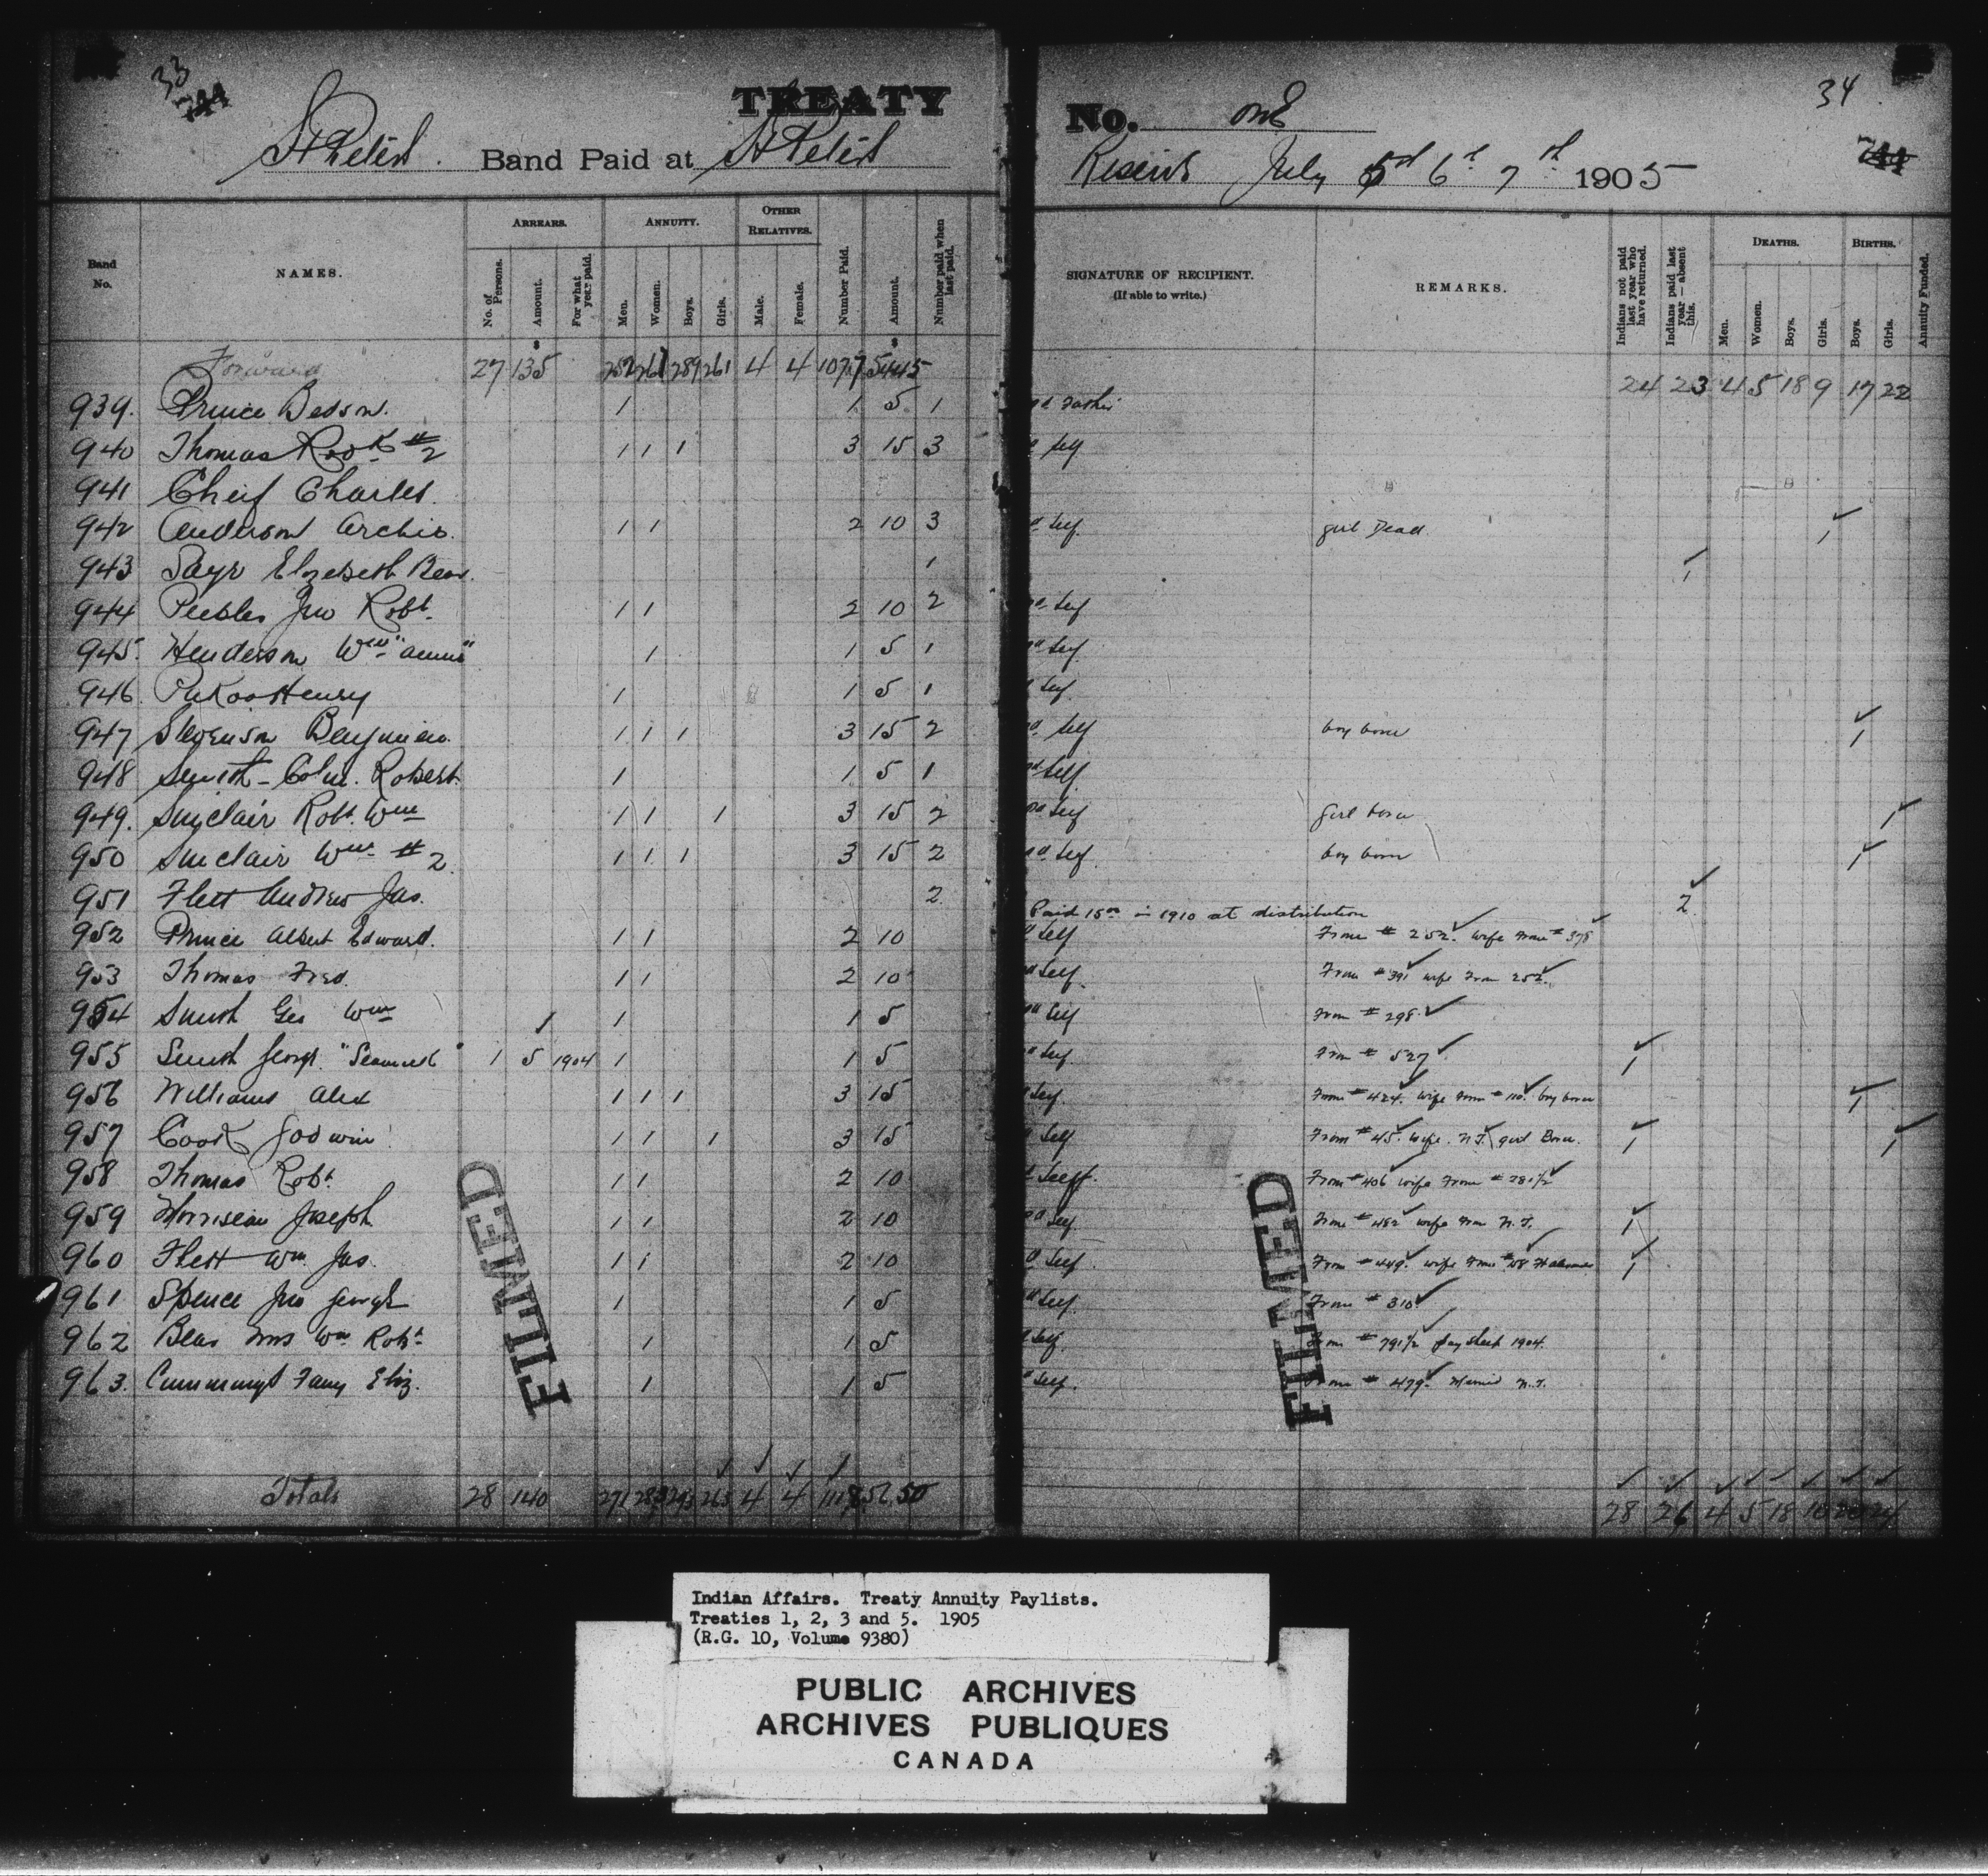 33
34
TREATY No. one
St Peters Band Paid at St Peters Reserve July 5th 6th 7th 1905
Band No. NAMES. ARREARS. ANNUITY. OTHER RELATIVES. Number Paid. Amount. Number paid when last paid. SIGNATURE OF RECIPIENT. (If able to write.) REMARKS. Indians not paid last year who have returned. Indians paid last year—absent this. DEATHS. BIRTHS. Annuity Funded.
No. of Persons. Amount. For what year paid. Men. Women. Boys. Girls. Male. Female. Men. Women. Boys. Girls. Boys. Girls.
Forward 27 135 252 261 289 261 4 4 1077 5445 24 23 4 5 18 9 17 22
939. Prince Bedson. 1 1 5 1 Father
940 Thomas Robt #2 1 1 1 3 15 3 Self
941 Cheif Charles.
942 Anderson Archie. 1 1 2 10 3 Self girl Dead. 1
943 Sayr Elizebeth Bear. 1 1
944 Peebles Jno Robt. 1 1 2 10 2 Self
945. Henderson Wm 1 1 5 1 Self
946 Henry 1 1 5 1 Self
947 Stevenson Benjmien. 1 1 1 3 15 2 Self boy born 1
948 Smith - Robert. 1 1 5 1 Self
949. Sinclair Robt. Wm 1 1 1 3 15 2 Self girl born 1
950 Sinclair Wm #2. 1 1 1 3 15 2 Self boy born 1
951 Flett Andrew Jas. 2 Paid 15 00 in 1910 at distribution 2
952 Prince Albert Edward. 1 1 2 10 Self From # 252. wife From # 378
953 Thomas Fred. 1 1 2 10 Self From # 391 wife From 252.
954 Smith Geo Wm 1 1 5 Self From # 298
955 Smith George 1 5 1904 1 1 5 Self From # 527 1
956 Williams Alex 1 1 1 3 15 Self From # 424. wife from # 110. boy born 1
957 Cook Godwin 1 1 1 3 15 Self From # 45. wife. N.T. girl Born. 1 1
958 Thomas Robt. 1 1 2 10 Self. From # 406 wife From # 281½
959 Morriseau Joseph 1 1 2 10 Self From # 482 wife from N.T. 1
960 Flett Wm. Jas. 1 1 2 10 Self. From # 449. wife From 1
961 Spence Jno George 1 1 5 Self. From # 310
962 Bear Mrs Wm Robt. 1 1 5 Self. From # 791½ paysheet 1904.
963. Cummings Fany Eliz. 1 1 5 Self. From # 479. Married N.T.
Totals 28 140 271 283 293 265 4 4 1118 5650 28 26 4 5 18 10 20 24
FILMED
FILMED
Indian Affairs. Treaty Annuity Paylists.
Treaties 1, 2, 3 and 5. 1905
(R.G. 10, Volume 9380)
PUBLIC ARCHIVES
ARCHIVES PUBLIQUES
CANADA